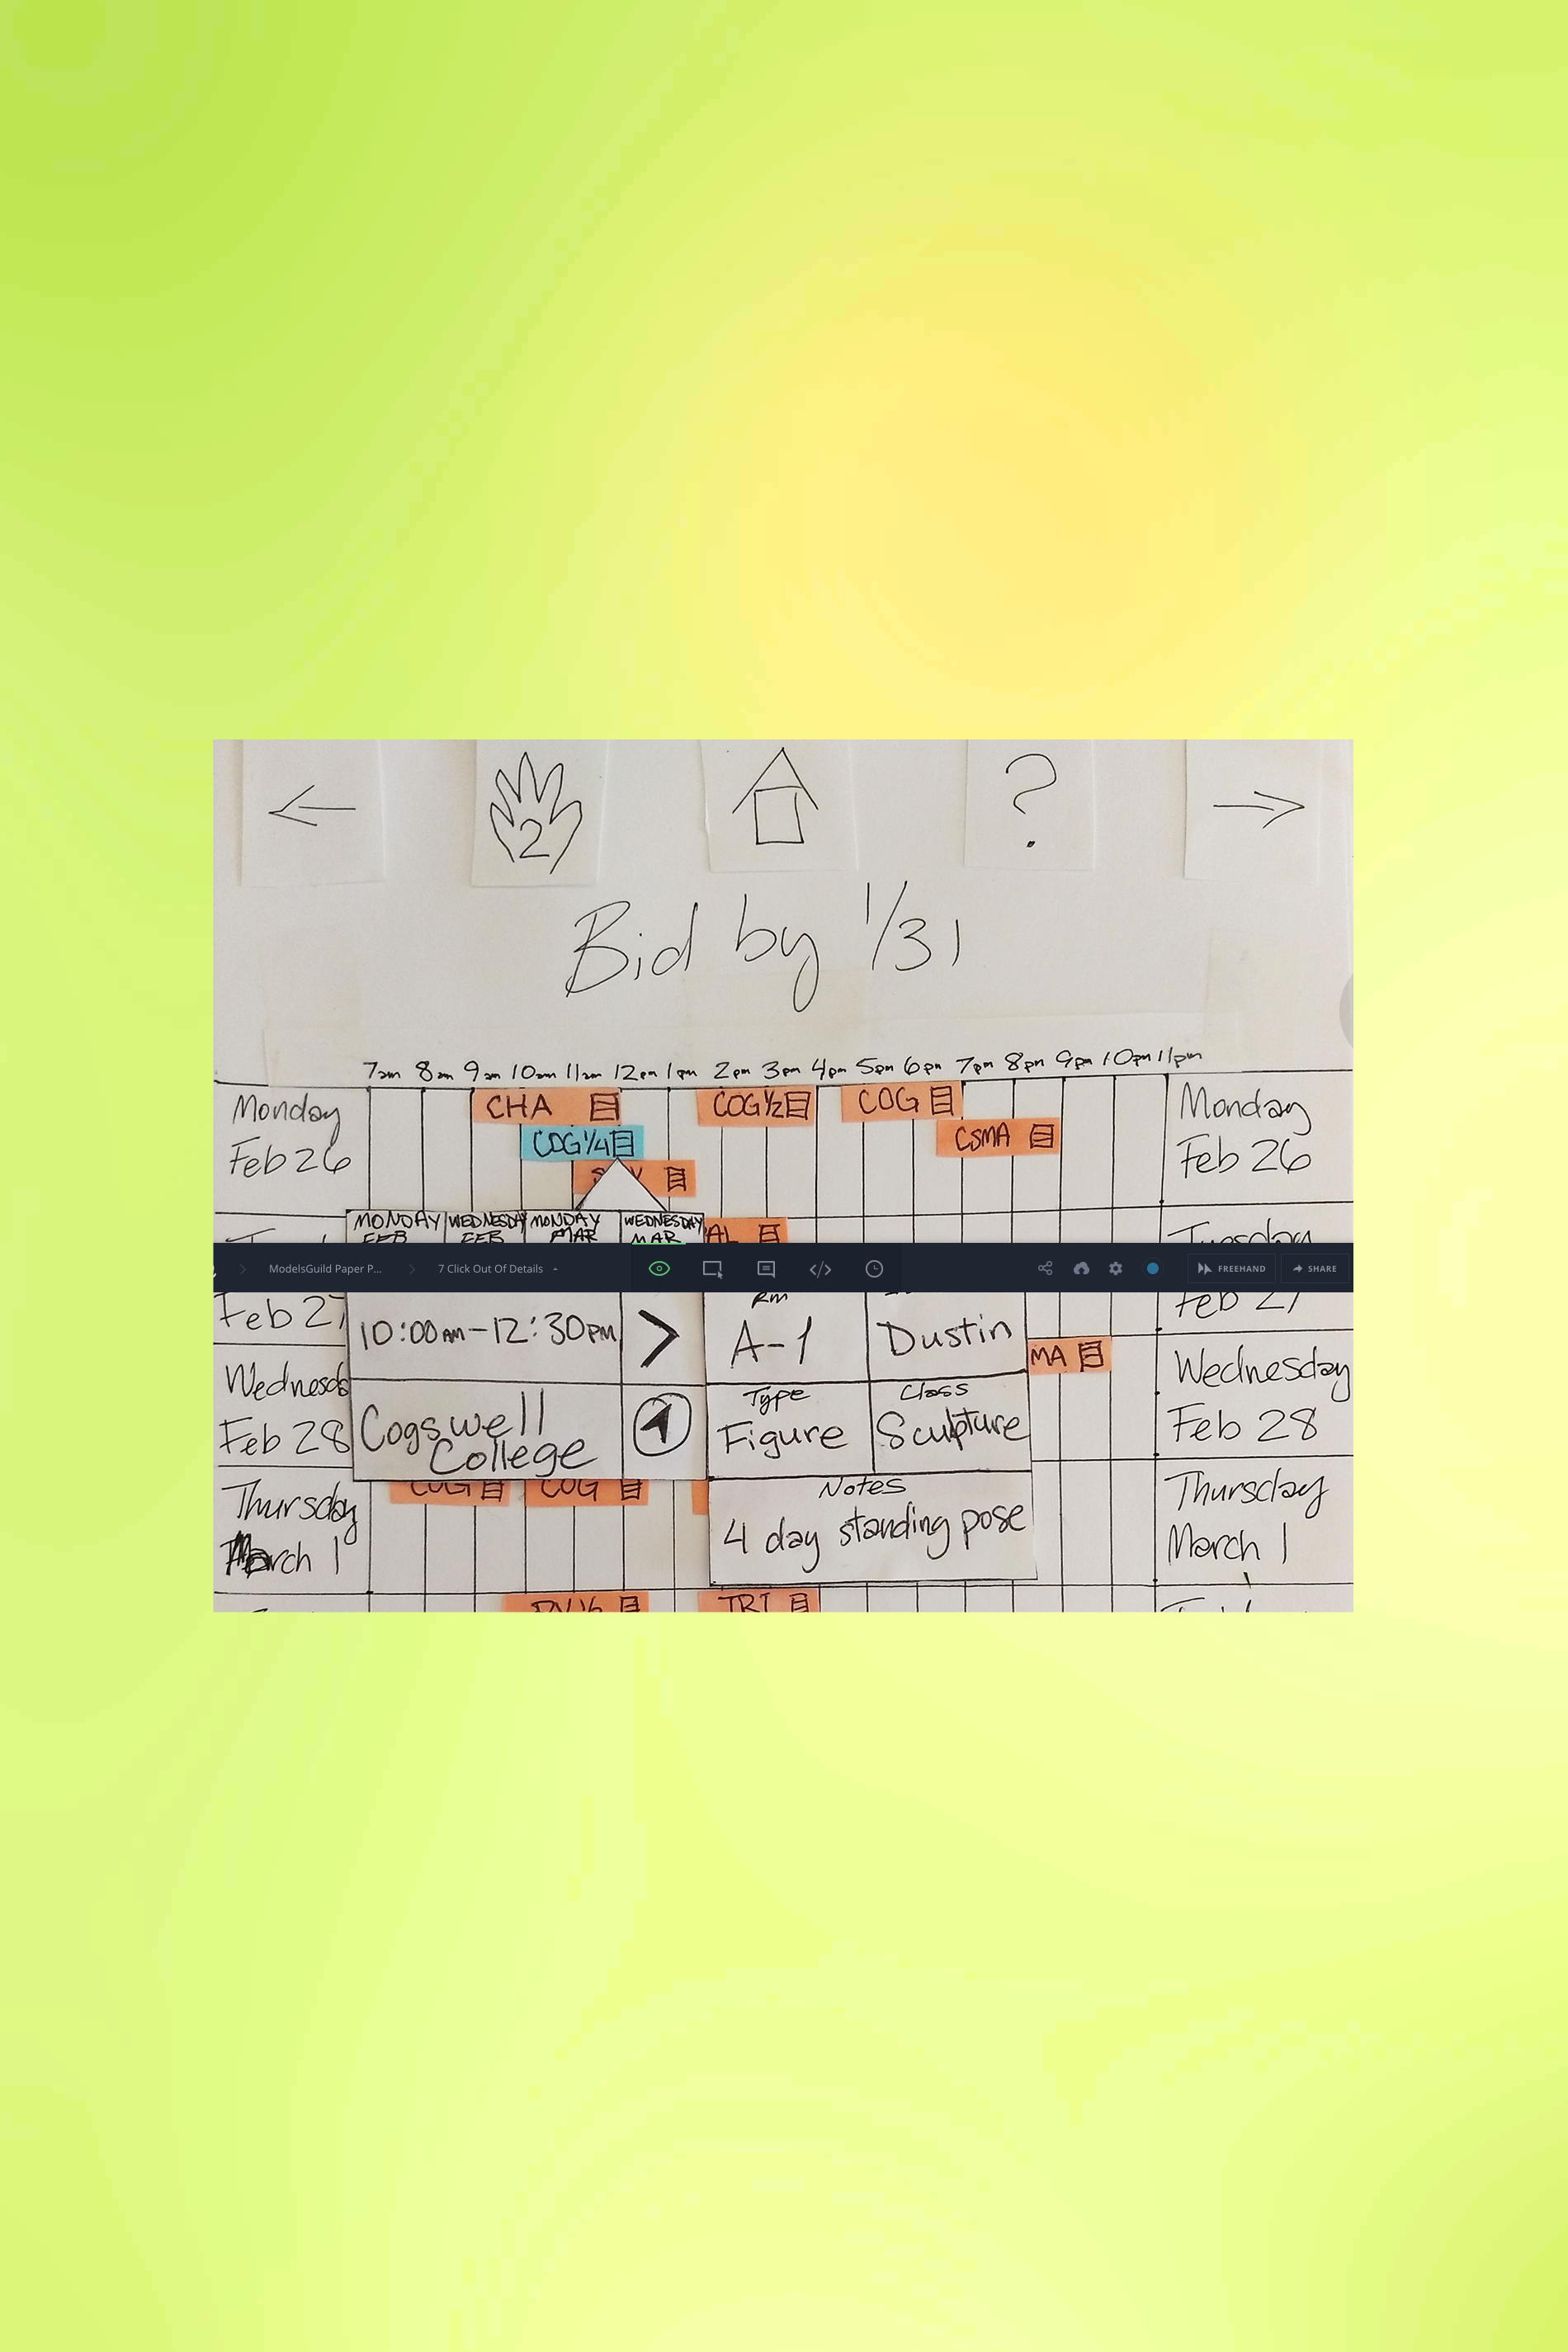 2
?
Bid by 1/31
7am 8am 9am 10am 11am 12pm 1pm 2pm 3pm 4pm 5pm 6pm 7pm 8pm 9pm 10pm 11pm
Monday
Feb 26
CHA
COG 1/2
COG
COG 1/4
CSMA
Monday
Feb 26
MONDAY FEB
WEDNESDAY FEB
MONDAY MAR
WEDNESDAY MAR
AL
Tuesday
ModelsGuild Paper P...
7 Click Out Of Details
FREEHAND
SHARE
Feb 27
10:00AM-12:30PM
>
Rm
A-1
Dustin
Feb 27
MA
Wednesd
Feb 28
Cogswell
College
Type
Figure
Class
Sculpture
Wednesday
Feb 28
Thursday
March 1
COG
COG
Notes
4 day standing pose
Thursday
March 1
TRI